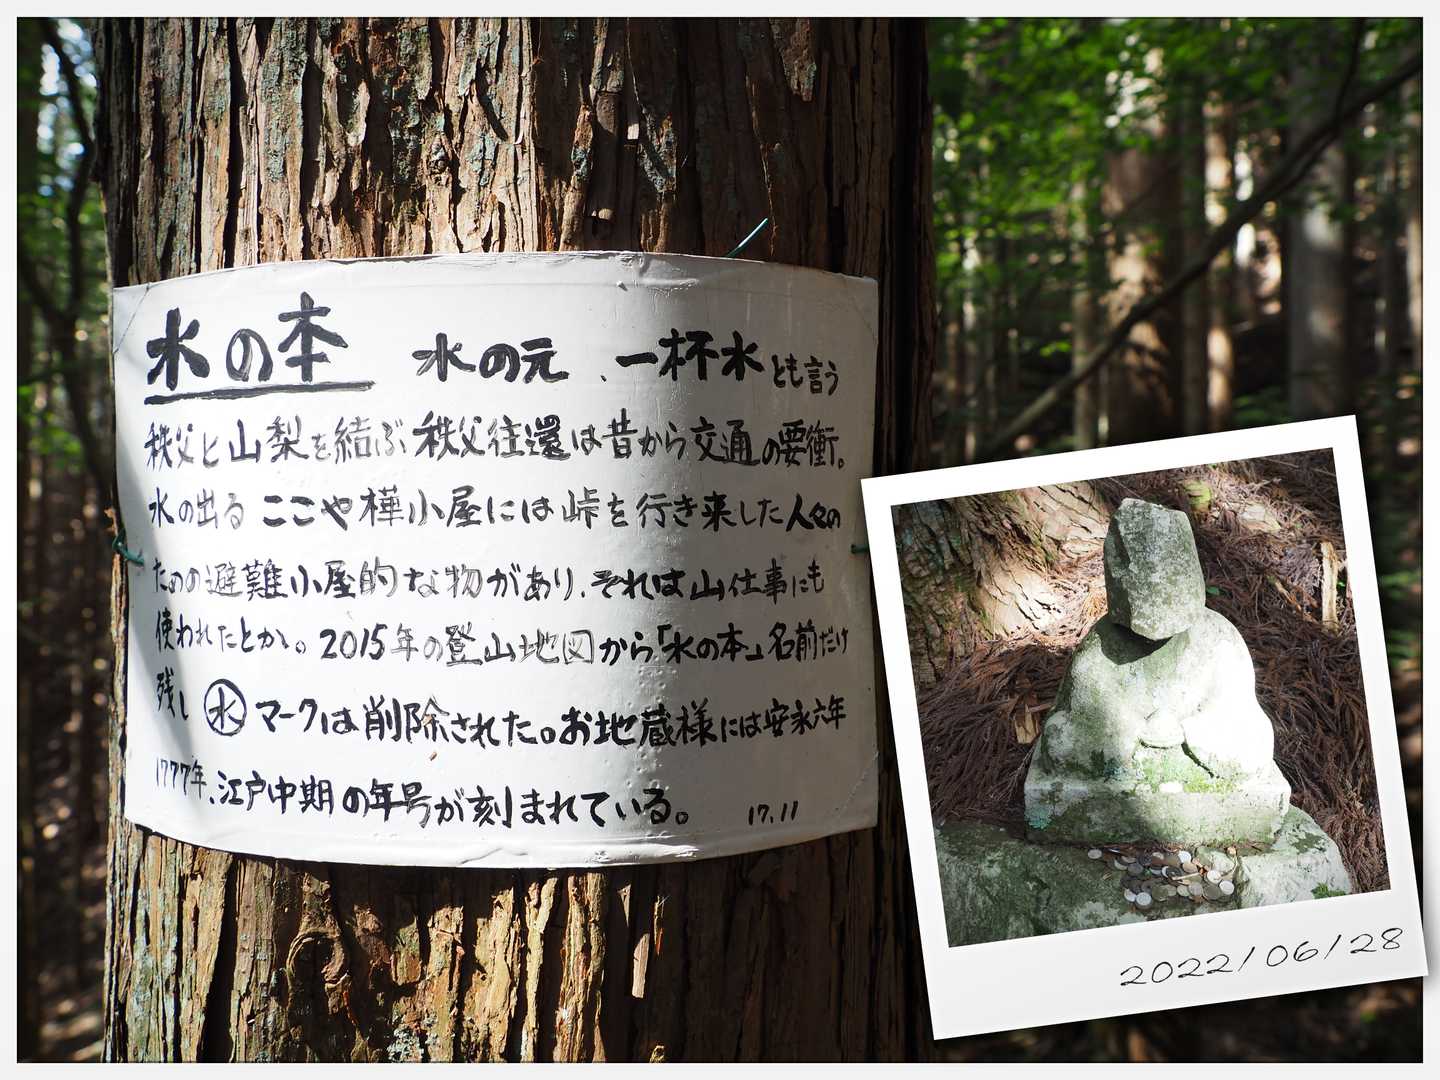 水の本 水の元、一杯水とも言う
秩父と山梨を結ぶ秩父往還は昔から交通の要衝。
水の出るここや樺小屋には峠を行き来した人々の
ための避難小屋的な物があり、それは山仕事にも
使われたとか。2015年の登山地図から「水の本」名前だけ
残し㊌マークは削除された。お地蔵様には安永六年
1777年、江戸中期の年号が刻まれている。 17.11
2022/06/28